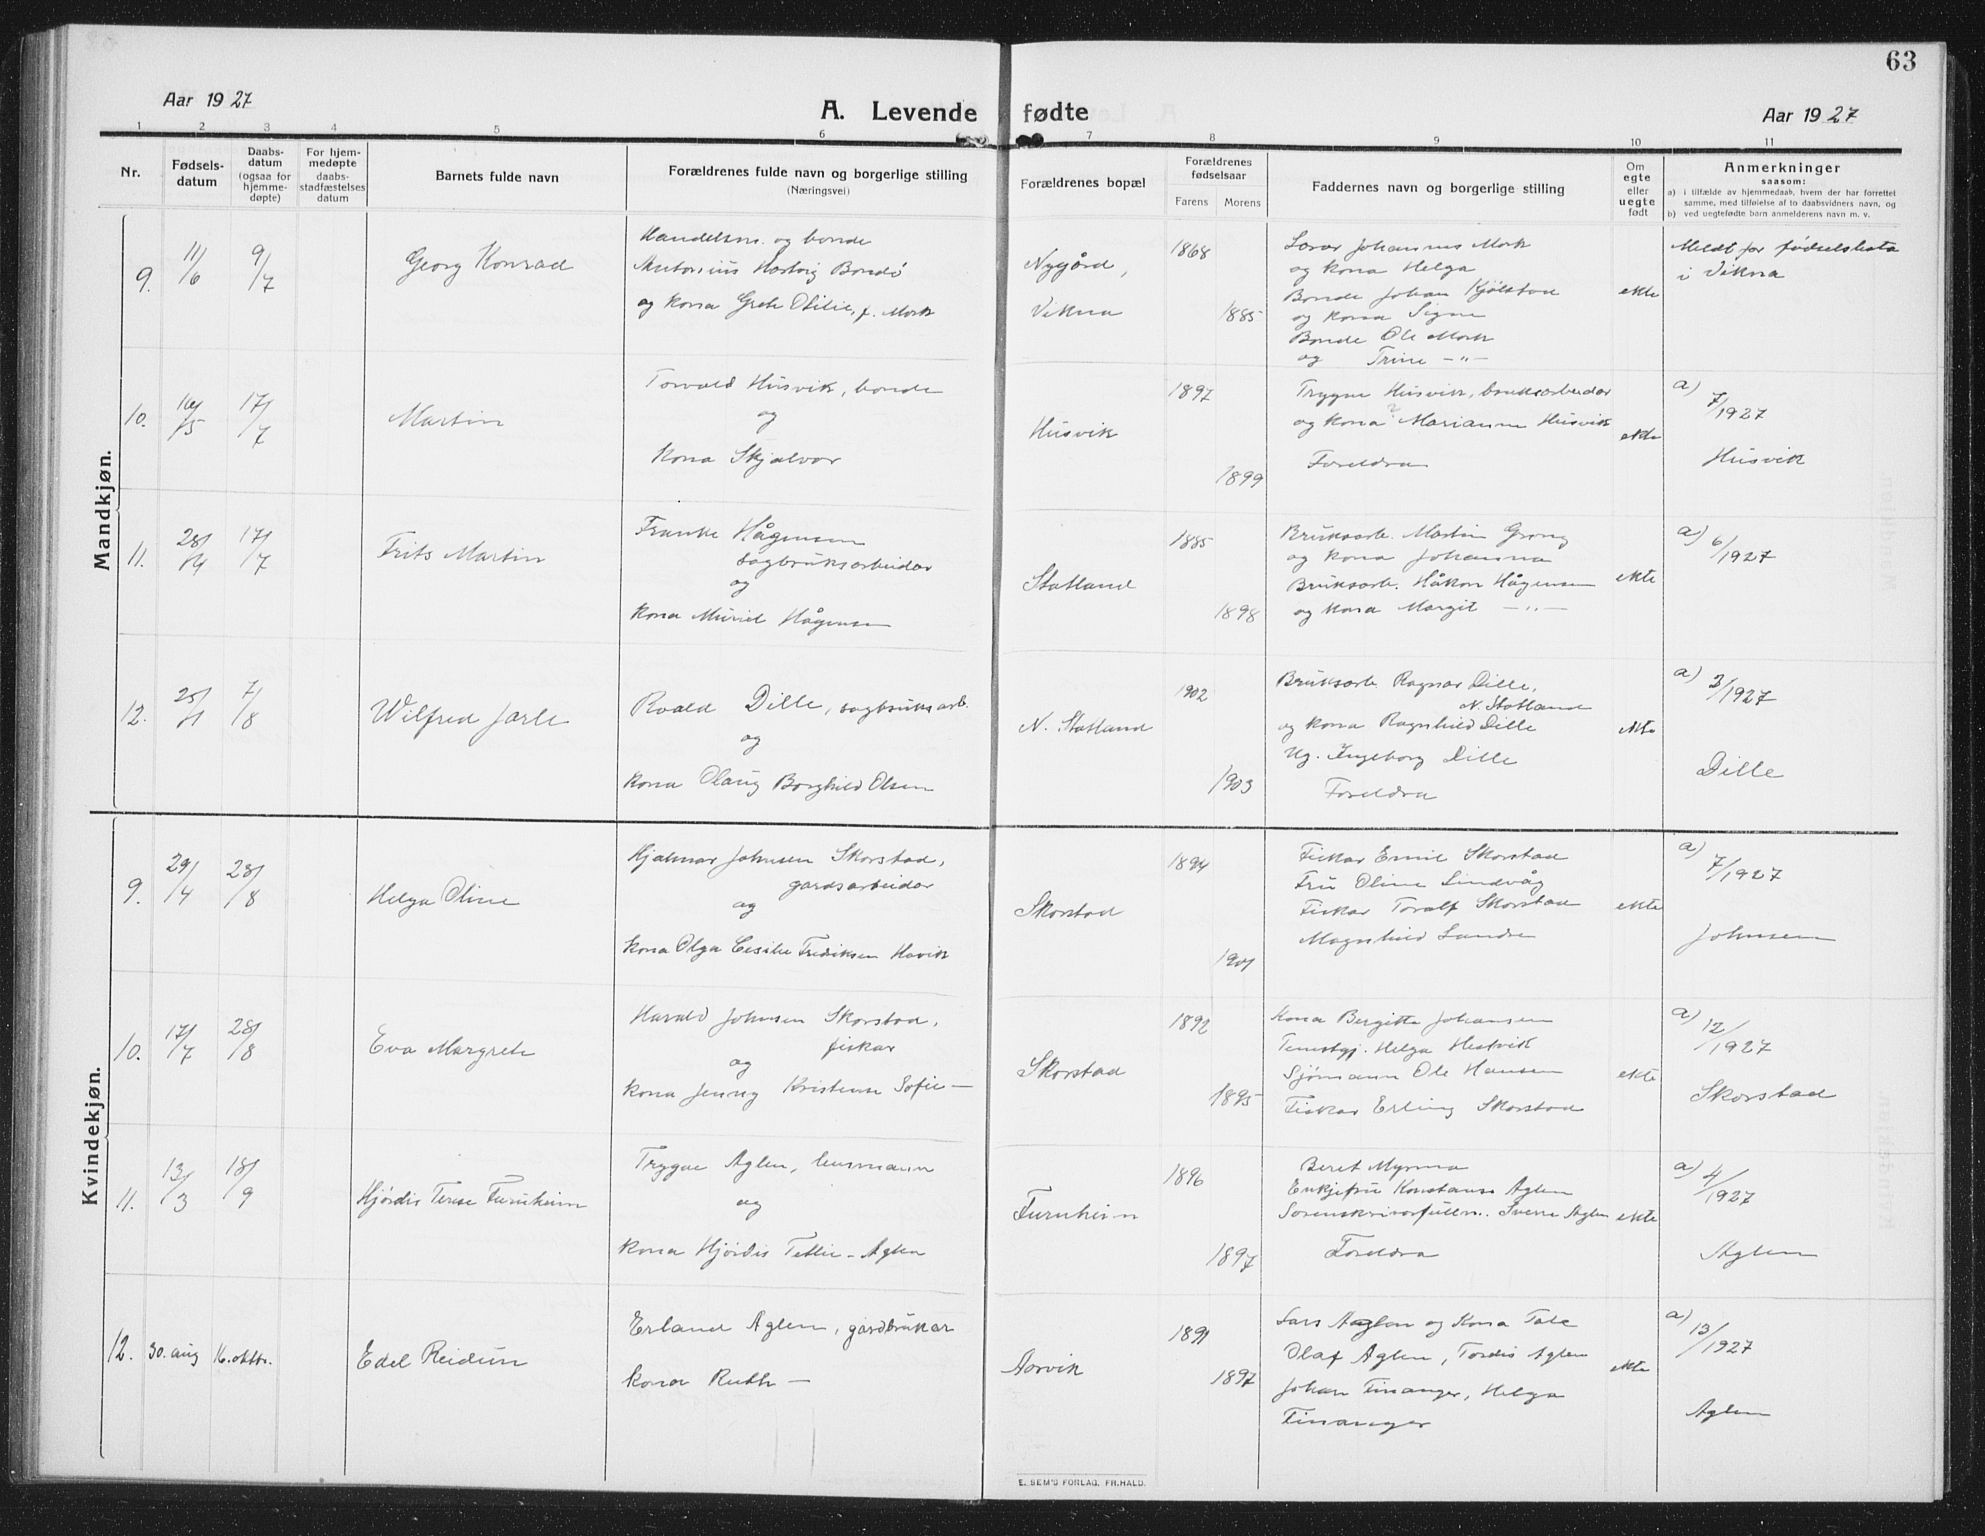 63
Aar 1927
A. Levende fødte
Aar 1927
1 2 3 4 5 6 7 8 9 10 11
Nr.
Fødsels-
datum
Daabs-
datum
(ogsaa for
hjemme-
døpte)
For hjem-
medøpte
daabs-
stadfæstelses
datum
Barnets fulde navn
Forældrenes fulde navn og borgerlige stilling
(Næringsvei)
Forældrenes bopæl
Forældrenes
fødselsaar
Farens Morens
Faddernes navn og borgerlige stilling
Om
egte
eller
uegte
født
Anmerkninger
saasom:
a) i tilfælde av hjemmedaab, hvem der har forrettet
samme, med tilføielse av to daabsvidners navn, og
b) ved uegtefødte barn anmelderens navn m. v.
Mandkjøn.
9.
11/6
9/7
Georg Konrad
Handelsm. og bonde
Hartvig Bondø
og kona Grete Otilie, f. Mork
Nygård,
Vikna
1868
1885
Lærar Johannes Mork
og kona Helga
Bonde Johan Kjølstad
og kona Signe
Bonde Ole Mork
og Trine -"-
ekte
Meldt for fødselslista
i Vikna
10.
/5
17/7
Martin
Torvald Husvik, bonde
og
kona Skjalvor
Husvik
1897
1899
Trygve Husvik, bruksarbeidar
og kona ? Marianne Husvik
Foreldra
ekte
a)
7/1927
Husvik
11.
28/
17/7
Frits Martin
Franke Hågensen
sagbruksarbeidar
og
kona Muriel Hågensen
Statland
1885
1898
Bruksarb. Martin Grong
og kona Johanna
Bruksarb. Håkon Hågensen
og kona Margit -"-
ekte
a)
6/1927
12.
25/
7/8
Wilfred Jarle
Roald Dille, sagbruksarb.
og
kona Olaug Borghild Olsen
N. Statland
1902
1903
Bruksarb. Ragnar Dille,
N. Statland
og kona Ragnhild Dille
Ug. Ingeborg Dille
Foreldra
ekte
a)
3/1927
Dille
Kvindekjøn.
9.
29/4
28/8
Helga Oline
Hjalmar Johnsen Skorstad,
gardsarbeidar
og
kona Olga Cesilie Fredriksen Havik
Skorstad
1894
1901
Fiskar Emil Skorstad
Fru Oline Lindvåg
Fiskar Toralf Skorstad
Magnhild Sandre
ekte
a)
7/1927
Johnsen
10.
17/7
28/8
Eva Margrete
Harald Johnsen Skorstad,
fiskar
og
kona Jenny Kristense Sofie —
Skorstad
1892
1895
Kona Bergitte Johansen
Tenestgj. Helga Hestvik
Sjømann Ole Hansen
Fiskar Erling Skorstad
ekte
a)
12/1927
Skorstad
11.
13/3
18/9
Hjørdis Terese Furuheim
Trygve Aglen, lensmann
og
kona Hjørdis Tetlie - Aglen
Furuheim
1896
1897
Beret Myrmo
Enkjefru Konstanse Aglen
Sorenskrivarfullm. Sverre Aglen
Foreldra
ekte
a)
4/1927
Aglen
12.
30. aug
16. oktbr.
Edel Reidun
Erland Aglen, gardbrukar
kona Ruth —
Aorvik
1891
1897
Lars Aaglen og kona Tale
Olaf Aglen, Tordis Aglen
Johan Finanger, Helga
Finanger
ekte
a)
13/1927
Aglen
E. SEM'S FORLAG, FR.HALD.